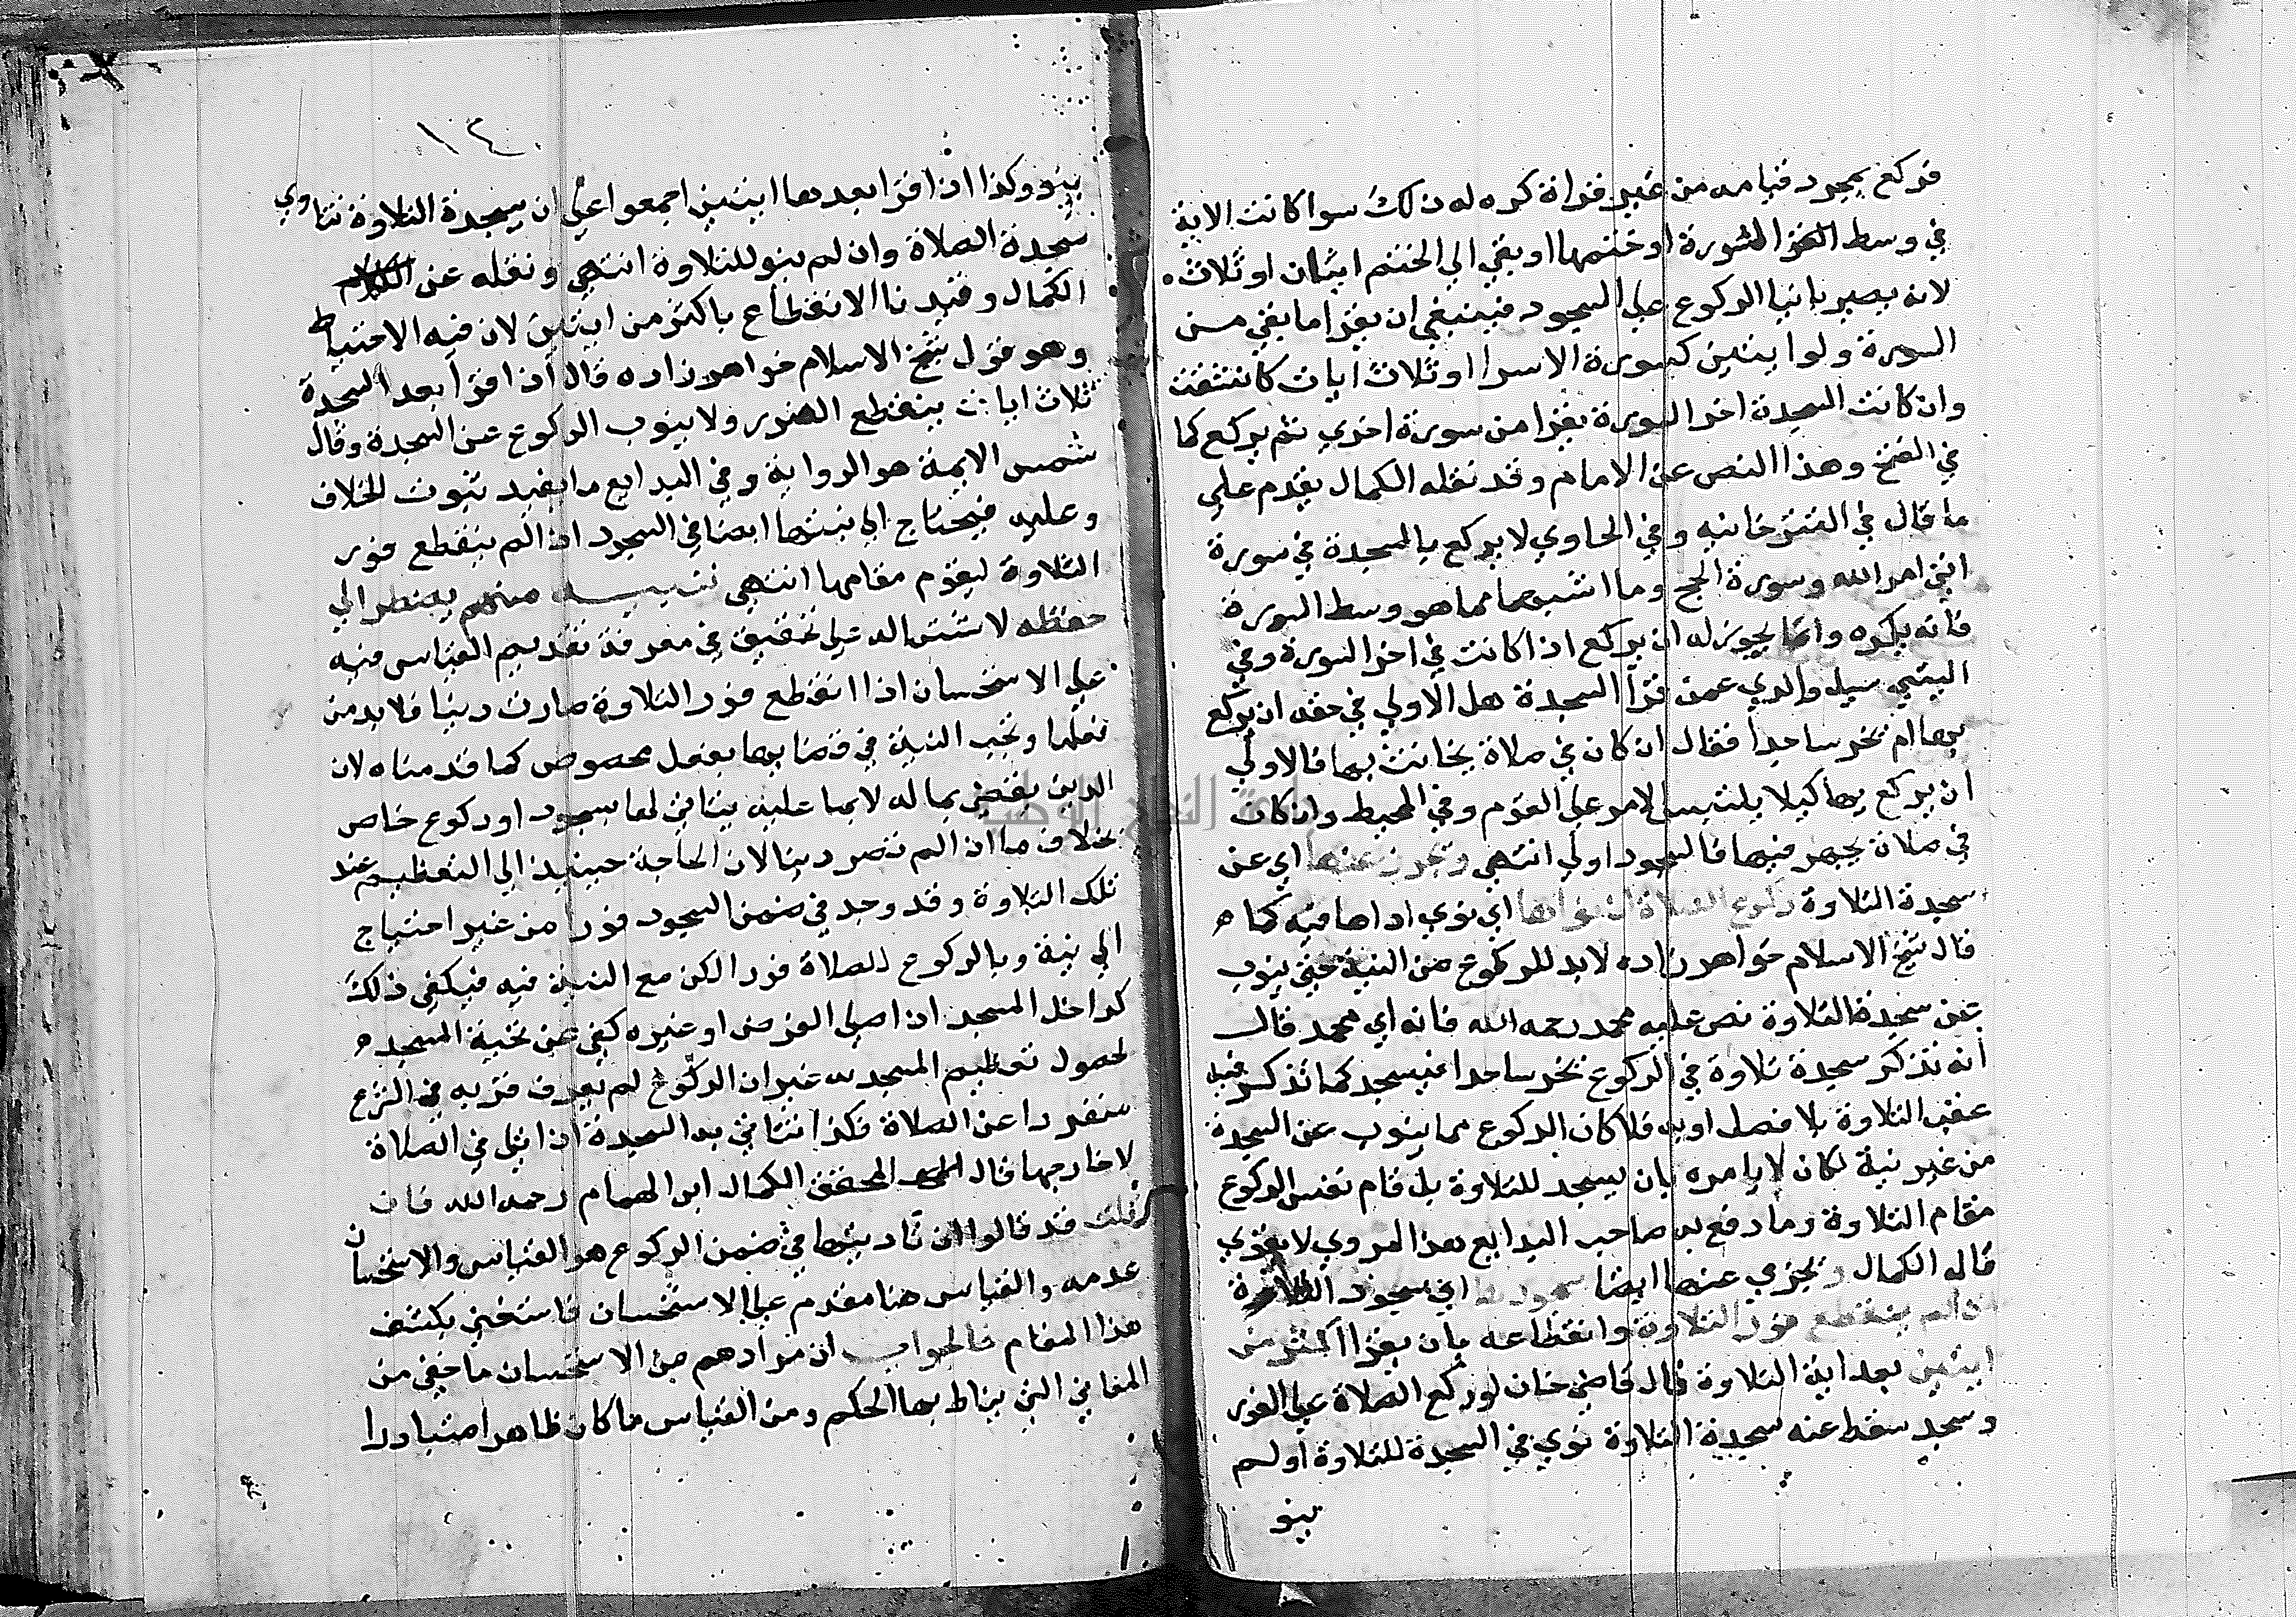 فركع بمجرد قيامه من غير قراة كره له ذلك سوا كانت الاية
في وسط السورة او ختمها او بقي الي الختم ايتان او ثلاث
لانه يصير بانيا الركوع علي السجود فينبغي ان يقرا ما بقي من
السورة ولو ايتين كسورة الاسرا او ثلاث ايات كانشقت
وان كانت السجدة اخر السورة يقرا من سورة اخري ثم يركع كما
في الفتح وهذا النص عن الامام وقد نقله الكمال يقدم علي
ما قال في التترخانيه وفي الحاوي لا يركع بالسجدة في سورة
اتي امر الله وسورة الحج وما اشبهها مما هو وسط السورة
فانه يكره وانما يجوز له ان يركع اذا كانت في اخر السورة وفي
اليتيمي سيل والدي عمن قرا السجدة هل الاولي في حقه ان يركع
بها ام يخر ساجدا فقال ان كان في صلاة يخافت بها فالاولي
ان يركع بها كيلا يلتبس الامر علي القوم وفي المحيط وان كانت
في صلاة يجهر فيها فالسجود اولي انتهي ويجزي عنها اي عن
سجدة التلاوة ركوع الصلاة ان نواها اي نوي اداها فيه كما
قال شيخ الاسلام خواهر زاده لا بد للركوع من النية حتي ينوب
عن سجدة التلاوة نص عليه محمد رحمه الله فانه اي محمد قال
انه تذكر سجدة تلاوة في الركوع يخر ساجدا فيسجد كما تذكر فيه
عقب التلاوة بلا فصل او به فلا كان الركوع مما ينوب عن السجدة
من غير نية لكان لا يامره بان يسجد للتلاوة بل قام نفس الركوع
مقام التلاوة وما دفع به صاحب البدايع هذا المروي لا يقوي
قاله الكمال ويجزي عنها ايضا سجودها اي سجود الصلاة
اذا لم ينقطع فور التلاوة وانقطاعه بان يقرا اكثر من
ايتين بعد اية التلاوة قال قاضي خان لو ركع الصلاة علي الفور
وسجد سقط عنه سجدة التلاوة نوي في السجدة للتلاوة او لم
ينو
١٢٠
ينو وكذا اذا قرا بعدها ايتين اجمعوا علي ان سجدة التلاوة تتاوي
سجدة الصلاة وان لم ينو للتلاوة انتهي ونقله عن
الكمال وقيدنا الانقطاع باكثر من ايتين لان فيه الاحتياط
وهو قول شيخ الاسلام خواهر زاده قال اذا قرا بعد السجدة
ثلاث ايات ينقطع الفور ولا ينوب الركوع عن السجدة وقال
شمس الايمة هو الرواية وفي البدايع ما يفيد ثبوت الخلاف
وعليه فيحتاج الي نيتها ايضا في السجود اذا لم ينقطع فور
التلاوة ليقوم مقامها انتهي تنبيه مهم يضطر الي
حفظه لاشتماله علي تحقيق في معرفة تقديم القياس فيه
علي الاستحسان اذا انقطع فور التلاوة صارت دينا فلا بد من
فعلها وتجب النية في قضايها بفعل مخصوص كما قدمناه لان
الدين يقضي بما له لا بما عليه فياتي لها بسجود او ركوع خاص
بخلاف ما اذا لم تصر دينا لان الحاجة حينيذ الي التعظيم عند
تلك التلاوة وقد وجد في ضمن السجود فورا من غير احتياج
الي نية وبالركوع للصلاة فورا لكن مع النية فيه فيكفي ذلك
كداخل المسجد اذا صلي الفرض او غيره كفي عن تحية المسجد
لحصول تعظيم المسجد به غير ان الركوع لم يعرف قربه في الشرع
منفردا عن الصلاة فكذا تتادي به السجدة اذا تلي في الصلاة
لا خارجها قال المحقق الكمال ابن الهمام رحمه الله فان
قلت قد قالوا ان تاديتها في ضمن الركوع هو القياس والاستحسان
عدمه والقياس هنا مقدم علي الاستحسان فاستغني بكشف
هذا المقام فالجواب ان مرادهم من الاستحسان ما خفي من
المعاني التي يناط بها الحكم ومن القياس ما كان ظاهرا متبادرا